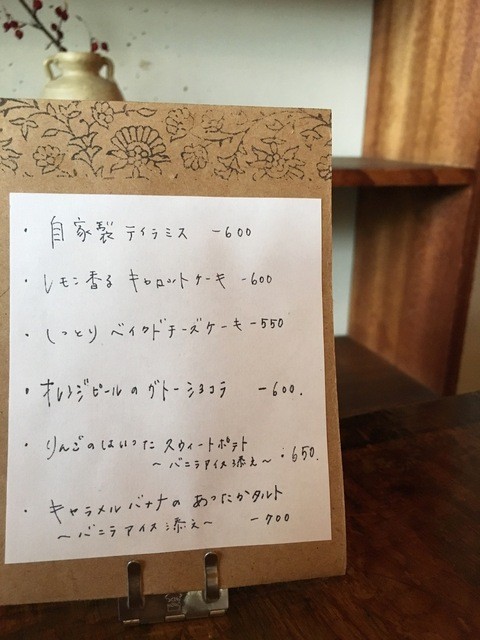 ・ 自家製 ティラミス －600
・ レモン香る キャロットケーキ －600
・ しっとり ベイクドチーズケーキ －550
・ オレンジピールのガトーショコラ －600.
・ りんごのはいった スウィートポテト
～バニラアイス添え～ ：650.
・ キャラメルバナナの あったかタルト
～バニラアイス添え～ －700